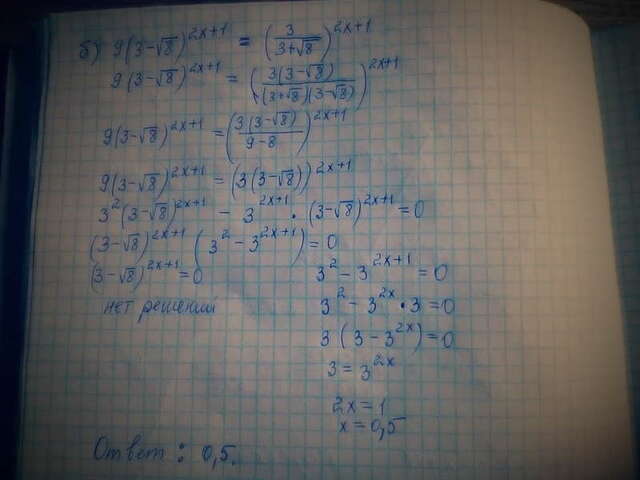 б) 9(3-√8)^{2x+1} = (3/(3+√8))^{2x+1}
9(3-√8)^{2x+1} = (3(3-√8)/((3+√8)(3-√8)))^{2x+1}
9(3-√8)^{2x+1} = (3(3-√8)/(9-8))^{2x+1}
9(3-√8)^{2x+1} = (3(3-√8))^{2x+1}
3^2(3-√8)^{2x+1} - 3^{2x+1} · (3-√8)^{2x+1} = 0
(3-√8)^{2x+1} (3^2 - 3^{2x+1}) = 0
(3-√8)^{2x+1} = 0
нет решений
3^2 - 3^{2x+1} = 0
3^2 - 3^{2x} · 3 = 0
3(3 - 3^{2x}) = 0
3 = 3^{2x}
2x = 1
x = 0,5
Ответ: 0,5.